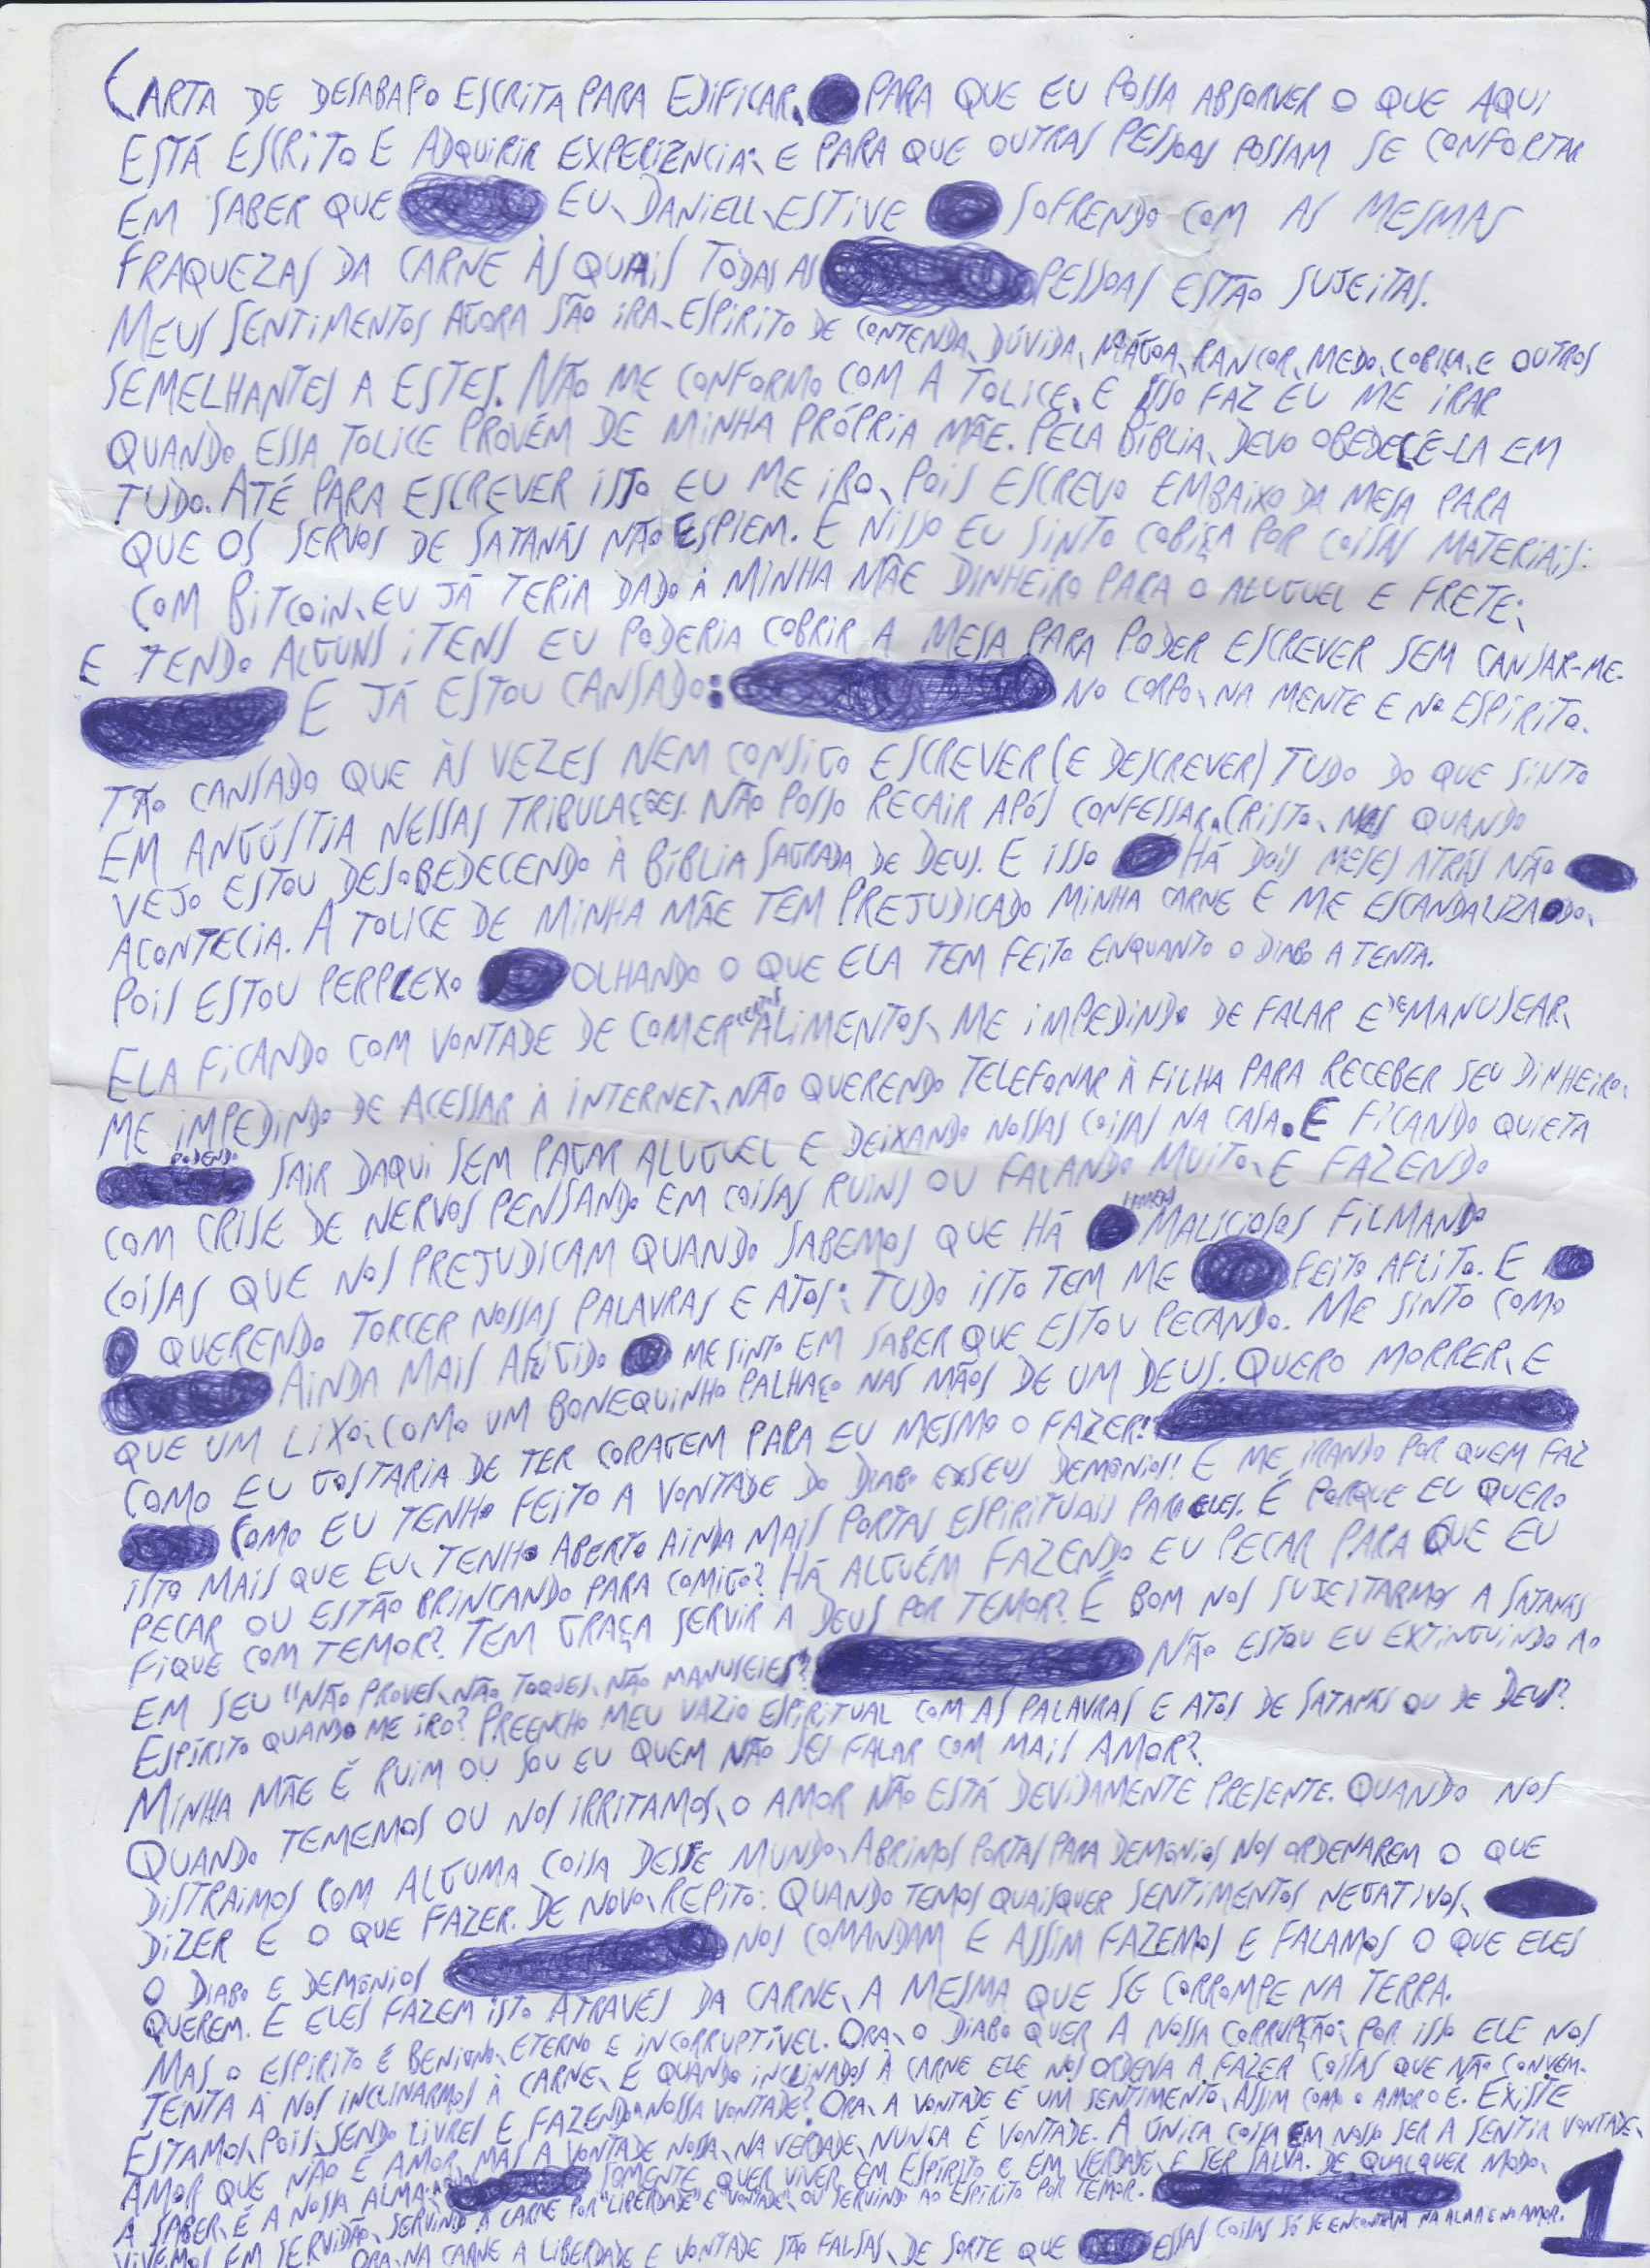 CARTA DE DESABAFO ESCRITA PARA EDIFICAR, PARA QUE EU POSSA ABSORVER O QUE AQUI
ESTÁ ESCRITO E ADQUIRIR EXPERIÊNCIA; E PARA QUE OUTRAS PESSOAS POSSAM SE CONFORTAR
EM SABER QUE EU, DANIELL, ESTIVE SOFRENDO COM AS MESMAS
FRAQUEZAS DA CARNE ÀS QUAIS TODAS AS PESSOAS ESTÃO SUJEITAS.
MEUS SENTIMENTOS AGORA SÃO IRA, ESPÍRITO DE CONTENDA, DÚVIDA, MÁGOA, RANCOR, MEDO, COBIÇA, E OUTROS
SEMELHANTES A ESTES. NÃO ME CONFORMO COM A TOLICE, E ISSO FAZ EU ME IRAR
QUANDO ESSA TOLICE PROVÉM DE MINHA PRÓPRIA MÃE. PELA BÍBLIA, DEVO OBEDECÊ-LA EM
TUDO. ATÉ PARA ESCREVER ISTO EU ME IRO, POIS ESCREVO EMBAIXO DA MESA PARA
QUE OS SERVOS DE SATANÁS NÃO ESPIEM. E NISSO EU SINTO COBIÇA POR COISAS MATERIAIS:
COM BITCOIN, EU JÁ TERIA DADO À MINHA MÃE DINHEIRO PARA O ALUGUEL E FRETE;
E TENDO ALGUNS ITENS EU PODERIA COBRIR A MESA PARA PODER ESCREVER SEM CANSAR-ME.
E JÁ ESTOU CANSADO: NO CORPO, NA MENTE E NO ESPÍRITO.
TÃO CANSADO QUE ÀS VEZES NEM CONSIGO ESCREVER (E DESCREVER) TUDO DO QUE SINTO
EM ANGÚSTIA NESSAS TRIBULAÇÕES. NÃO POSSO RECAIR APÓS CONFESSAR A CRISTO, MAS QUANDO
VEJO ESTOU DESOBEDECENDO À BÍBLIA SAGRADA DE DEUS. E ISSO HÁ DOIS MESES ATRÁS NÃO
ACONTECIA. A TOLICE DE MINHA MÃE TEM PREJUDICADO MINHA CARNE E ME ESCANDALIZADO,
POIS ESTOU PERPLEXO OLHANDO O QUE ELA TEM FEITO ENQUANTO O DIABO A TENTA.
ELA FICANDO COM VONTADE DE COMER CERTOS ALIMENTOS, ME IMPEDINDO DE FALAR E DE MANUSEAR,
ME IMPEDINDO DE ACESSAR À INTERNET, NÃO QUERENDO TELEFONAR À FILHA PARA RECEBER SEU DINHEIRO,
PODENDO SAIR DAQUI SEM PAGAR ALUGUEL E DEIXANDO NOSSAS COISAS NA CASA. E FICANDO QUIETA
COM CRISE DE NERVOS PENSANDO EM COISAS RUINS OU FALANDO MUITO, E FAZENDO
COISAS QUE NOS PREJUDICAM QUANDO SABEMOS QUE HÁ HOMENS MALICIOSOS FILMANDO
E QUERENDO TORCER NOSSAS PALAVRAS E ATOS; TUDO ISTO TEM ME FEITO AFLITO. E
AINDA MAIS AFLIGIDO ME SINTO EM SABER QUE ESTOU PECANDO. ME SINTO COMO
QUE UM LIXO, COMO UM BONEQUINHO PALHAÇO NAS MÃOS DE UM DEUS. QUERO MORRER, E
COMO EU GOSTARIA DE TER CORAGEM PARA EU MESMO O FAZER!
COMO EU TENHO FEITO A VONTADE DO DIABO E SEUS DEMÔNIOS! E ME IRANDO POR QUEM FAZ
ISTO MAIS QUE EU, TENHO ABERTO AINDA MAIS PORTAS ESPIRITUAIS PARA ELES. É PORQUE EU QUERO
PECAR OU ESTÃO BRINCANDO PARA COMIGO? HÁ ALGUÉM FAZENDO EU PECAR PARA QUE EU
FIQUE COM TEMOR? TEM GRAÇA SERVIR A DEUS POR TEMOR? É BOM NOS SUJEITARMOS A SATANÁS
EM SEU "NÃO PROVES, NÃO TOQUES, NÃO MANUSEIES"? NÃO ESTOU EU EXTINGUINDO AO
ESPÍRITO QUANDO ME IRO? PREENCHO MEU VAZIO ESPIRITUAL COM AS PALAVRAS E ATOS DE SATANÁS OU DE DEUS?
MINHA MÃE É RUIM OU SOU EU QUEM NÃO SEI FALAR COM MAIS AMOR?
QUANDO TEMEMOS OU NOS IRRITAMOS, O AMOR NÃO ESTÁ DEVIDAMENTE PRESENTE. QUANDO NOS
DISTRAIMOS COM ALGUMA COISA DESSE MUNDO, ABRIMOS PORTAS PARA DEMÔNIOS NOS ORDENAREM O QUE
DIZER E O QUE FAZER. DE NOVO, REPITO: QUANDO TEMOS QUAISQUER SENTIMENTOS NEGATIVOS,
O DIABO E DEMÔNIOS NOS COMANDAM E ASSIM FAZEMOS E FALAMOS O QUE ELES
QUEREM. E ELES FAZEM ISTO ATRAVÉS DA CARNE, A MESMA QUE SE CORROMPE NA TERRA.
MAS O ESPÍRITO É BENIGNO, ETERNO E INCORRUPTÍVEL. ORA, O DIABO QUER A NOSSA CORRUPÇÃO; POR ISSO ELE NOS
TENTA À NOS INCLINARMOS À CARNE, E QUANDO INCLINADOS À CARNE ELE NOS ORDENA A FAZER COISAS QUE NÃO CONVÉM.
ESTAMOS, POIS, SENDO LIVRES E FAZENDO A NOSSA VONTADE? ORA, A VONTADE É UM SENTIMENTO, ASSIM COMO O AMOR O É. EXISTE
AMOR QUE NÃO É AMOR, MAS A VONTADE NOSSA, NA VERDADE, NUNCA É VONTADE. A ÚNICA COISA EM NOSSO SER A SENTIR VONTADE,
A SABER, É A NOSSA ALMA. SOMENTE QUER VIVER EM ESPÍRITO E EM VERDADE, E SER SALVA. DE QUALQUER MODO,
VIVEMOS EM SERVIDÃO, SERVINDO A CARNE POR "LIBERDADE" E "VONTADE", OU SERVINDO AO ESPÍRITO POR TEMOR.
ORA, NA CARNE A LIBERDADE E VONTADE SÃO FALSAS, DE SORTE QUE ESSAS COISAS SÓ SE ENCONTRAM NA ALMA E NO AMOR.
1